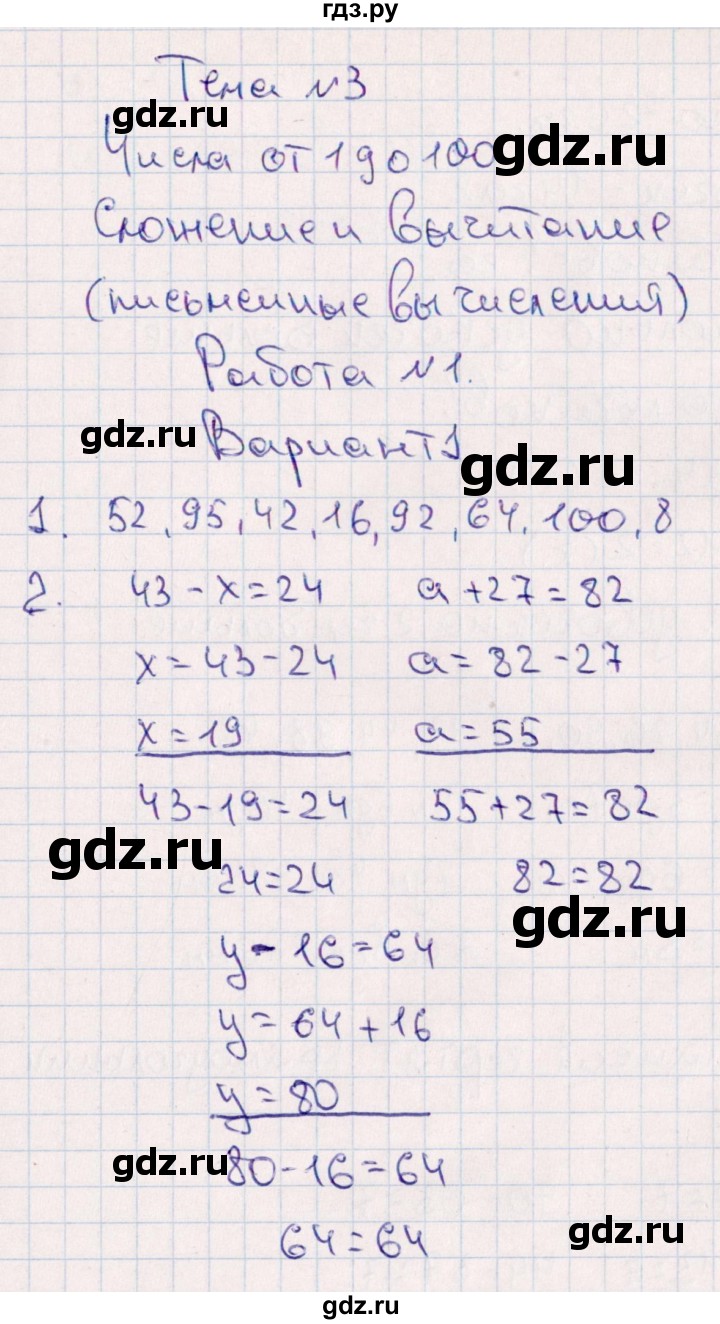 гдз.ру
Тема №3
gdz.ru
Числа от 1 до 100
gdz.ru
Сложение и вычитание
(письменные вычисления)
Работа №1.
gdz.ru
Вариант 1
gdz.ru
1. 52, 95, 42, 16, 92, 64, 100, 8
2. 43 - x = 24 a + 27 = 82
x = 43 - 24 a = 82 - 27
x = 19 a = 55
43 - 19 = 24 55 + 27 = 82
gdz.ru
24 = 24 82 = 82
gdz.ru
y - 16 = 64
y = 64 + 16
y = 80
gdz.ru
80 - 16 = 64
gdz.ru
64 = 64
gdz.ru